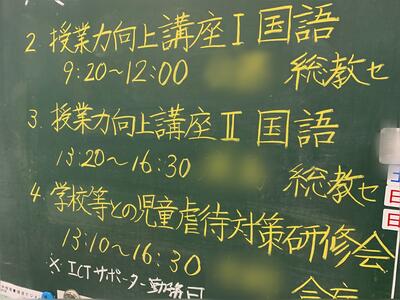 2. 授業力向上講座Ⅰ 国語
9:20〜12:00 総教セ
3. 授業力向上講座Ⅱ 国語
13:20〜16:30 総教セ
4. 学校等との児童虐待対策研修会
13:10〜16:30
※ICTサポーター勤務可
土
日
日